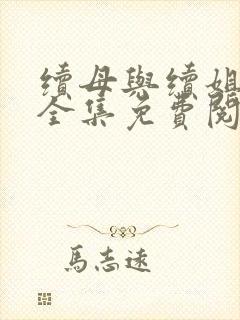 續母與續姐
全集免費閱
馬志遠